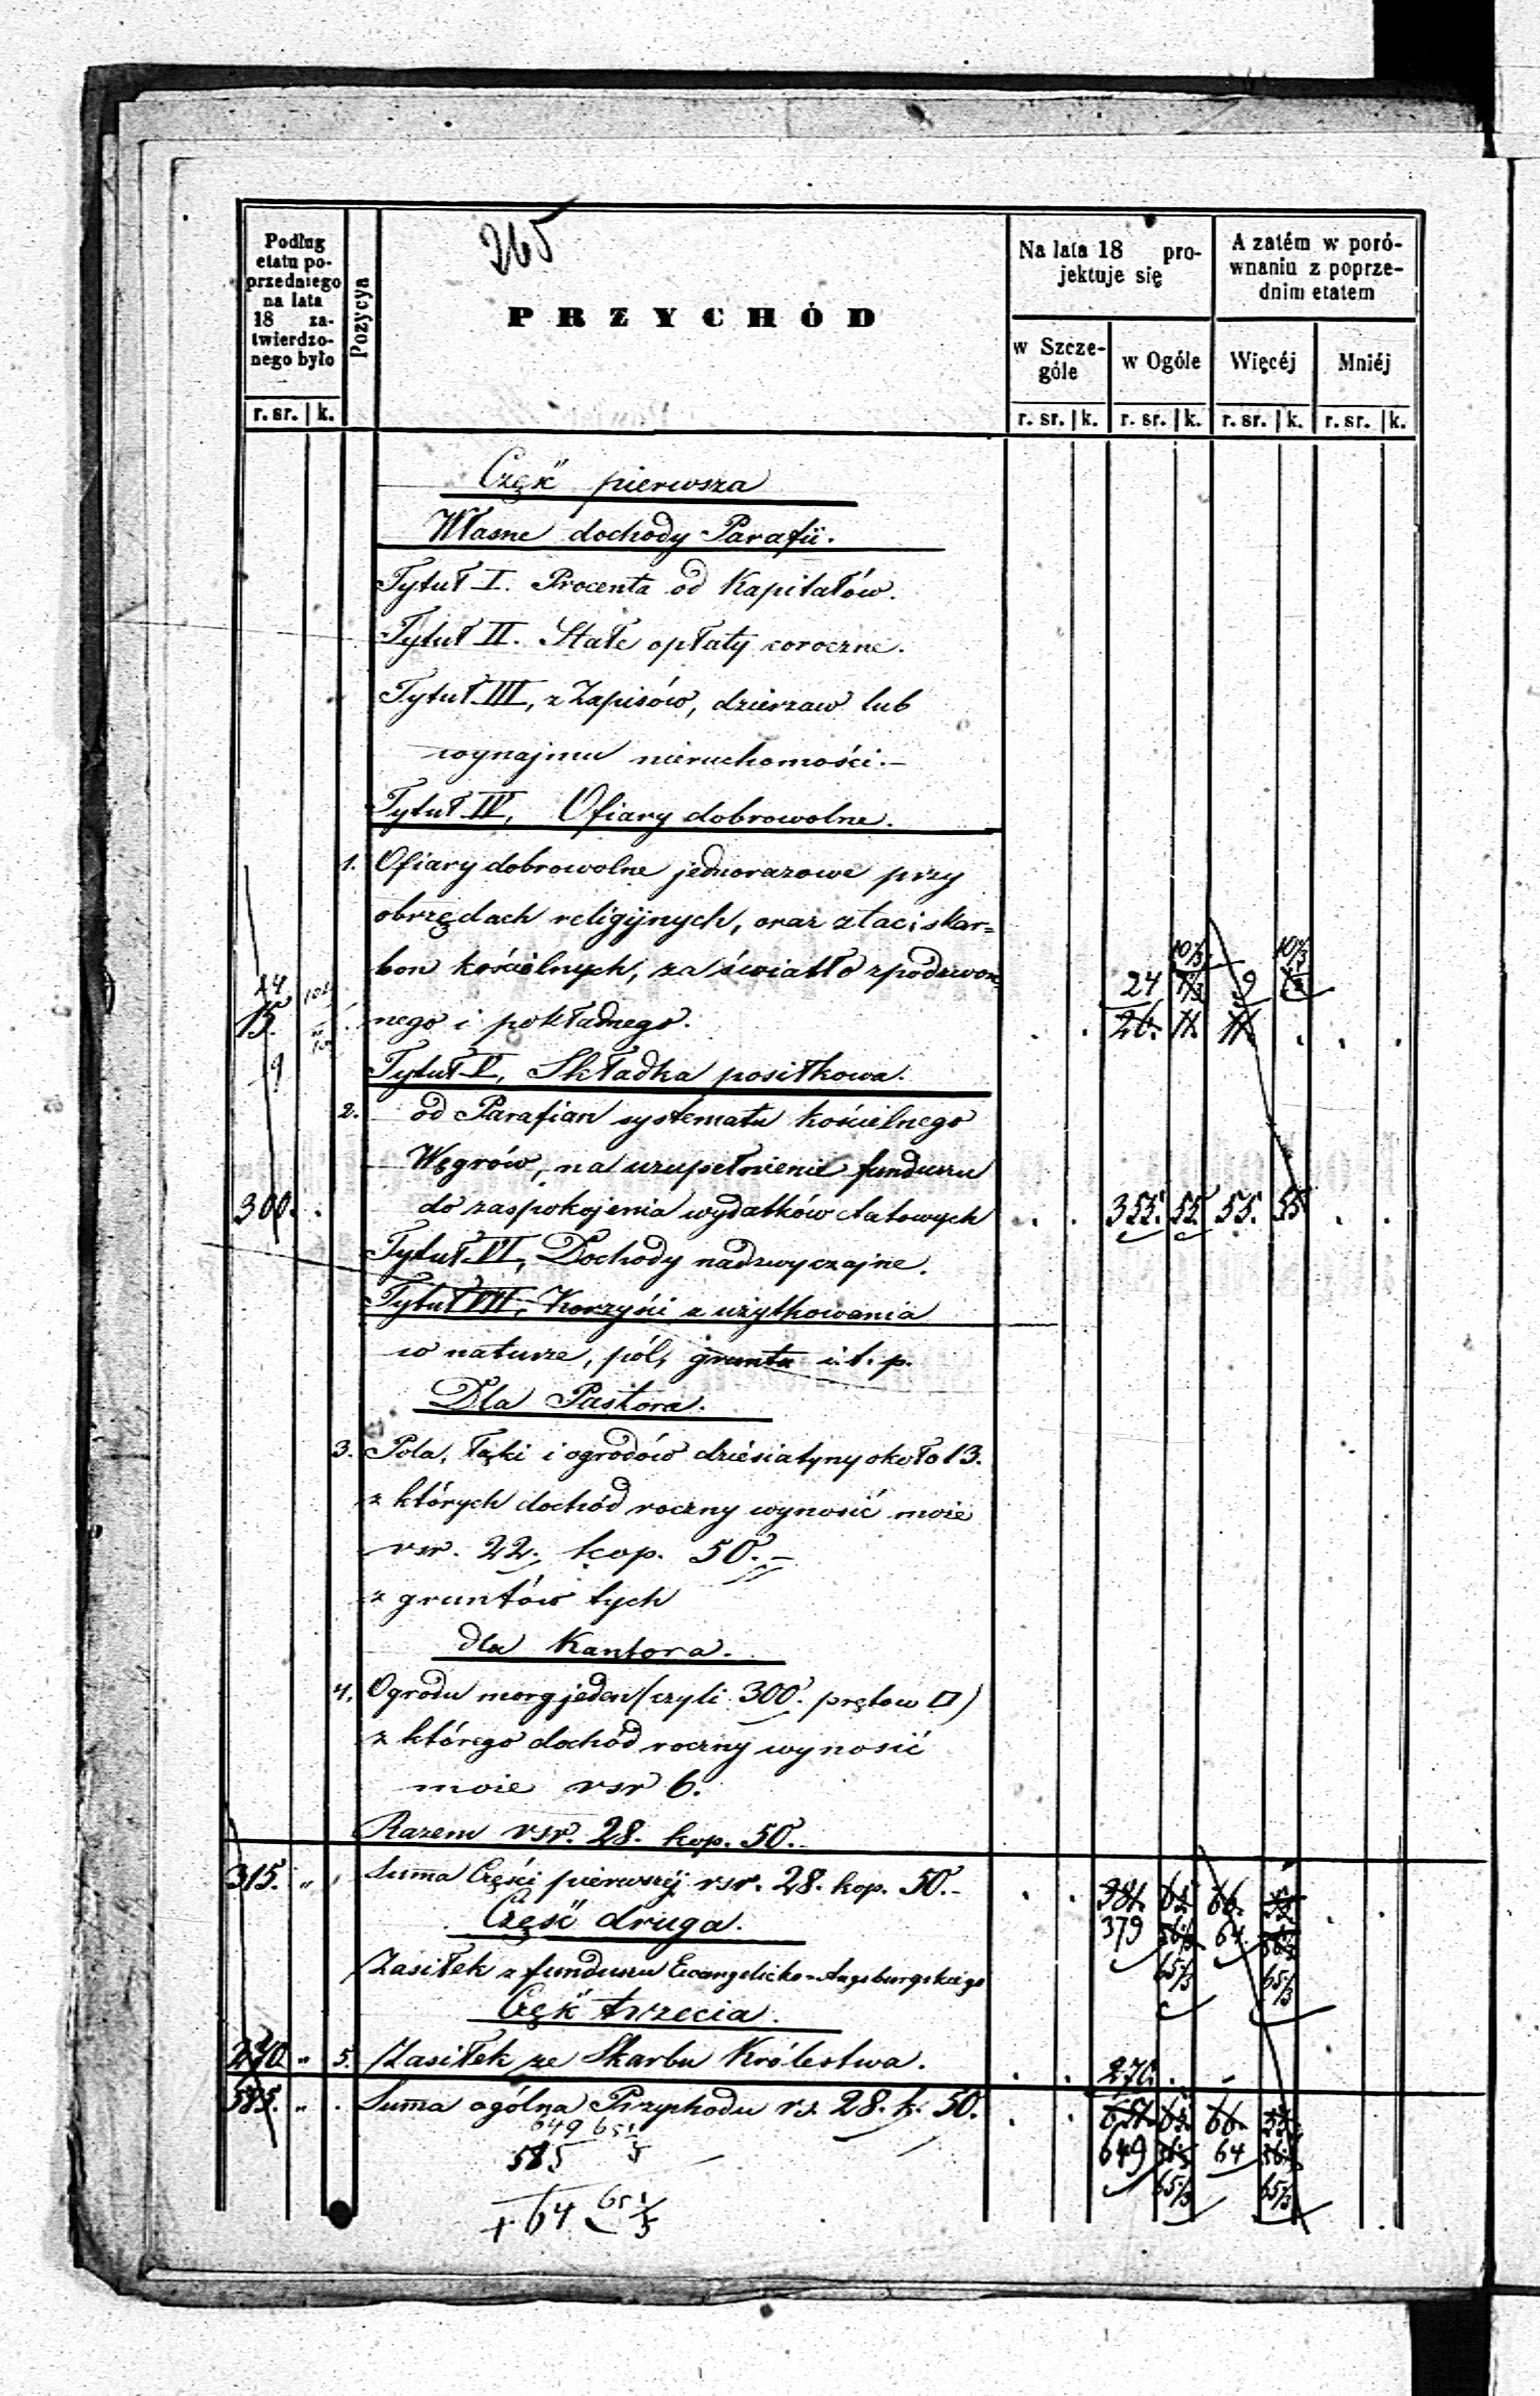 265
Podług
etatu po-
przedniego
na lata
18 za-
twierdzo-
nego było
r. sr. k.
Pozycya
PRZYCHÓD
Na lata 18 pro-
jektuje się
w Szcze-
góle
r. sr. k.
w Ogóle
r. sr. k.
A zatém w poró-
wnaniu z poprze-
dnim etatem
Więcéj
r. sr. k.
Mniéj
r. sr. k.
Część pierwsza
Własne dochody Parafii.
Tytuł I. Procenta od Kapitałów.
Tytuł II. Stałe opłaty coroczne.
Tytuł III, z Zapisów, dzierzaw lub
wynajmu nieruchomości.-
Tytuł IV, Ofiary dobrowolne.
1. Ofiary dobrowolne jednorazowe przy
obrzędach religijnych, oraz z tac i skar=
bon kościelnych, za światło
24 9
15. nego i pokładnego. 26. 11. 11.
Tytuł V, Składka posiłkowa.
2. od Parafian systematu kościelnego
Węgrów, na uzupełnienie funduszu
300. do zaspokojenia wydatków etatowych 355. 55. 55. 55
Tytuł VI, Dochody nadzwyczajne.
Tytuł VII, Korzyści z użytkowania
w naturze, pól, gruntu i.t.p.
Dla Pastora.
3. Pola, łąki i ogrodów dziesiatyny około 13.
z których dochód roczny wynosić moie
rsr. 22, kop. 50.-
z gruntów tych
dla Kantora.
4. Ogrodu morg jeden (czyli 300. prętow □)
z którego dochód roczny wynosić
moie rsr 6.
Razem rsr. 28. kop. 50.
315. " Summa Części pierwszej rsr. 28. kop. 50.- 381. 65. 66.
Część druga. 379 64
Zasiłek z funduszu Ewangelicko-Augsburgskiego 65⅓ 65⅓
Część trzecia.
270 " 5. Zasiłek ze Skarbu Królestwa. 270.
585. " Summa ogólna Przychodu rs. 28. k. 50. 651. 65. 66.
649 65⅓ 649 64
585 65⅓ 65⅓
+64 65⅓